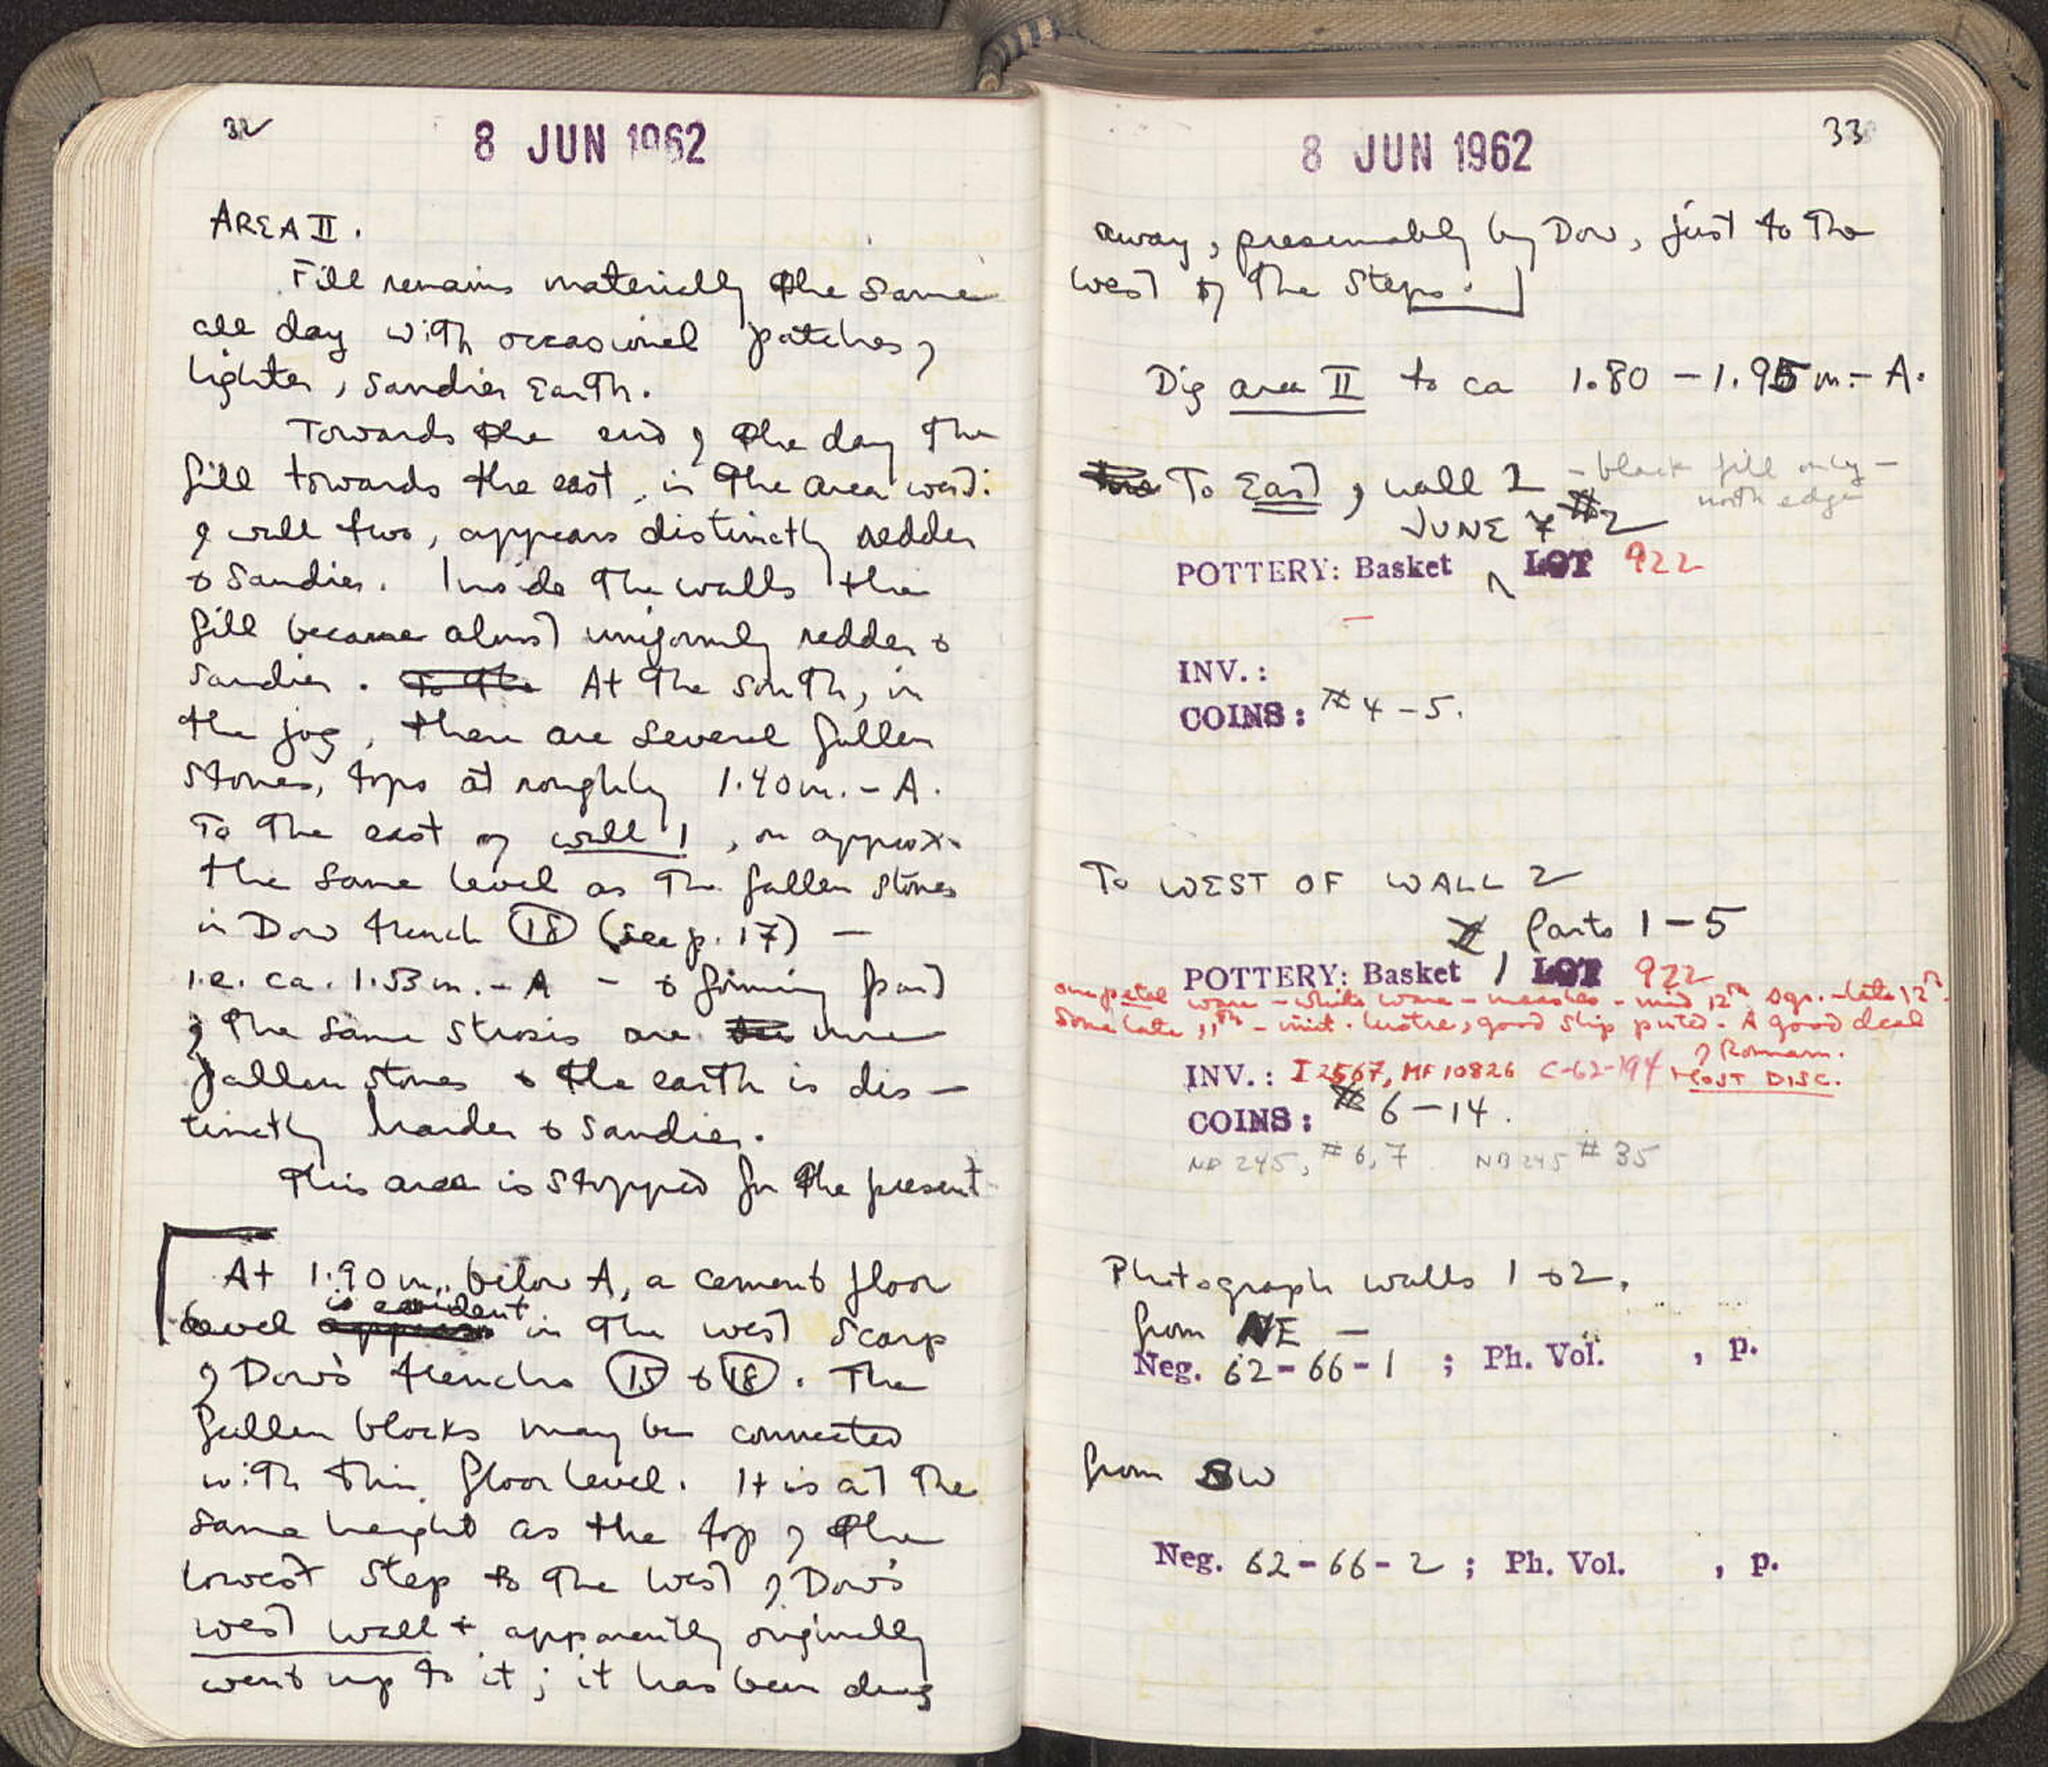 32
8 JUN 1962
AREA II.
Fill remains materially the same
all day with occasional patches of
lighter, sandier earth.
Towards the end of the day the
fill towards the east, in the area west
of wall two, appears distinctly redder
& sandier. Inside the walls the
fill became almost uniformly redder &
sandier. To the At the south, in
the jog, there are several fallen
stones, tops at roughly 1.40 m. - A.
To the east of wall 1, on approx.
the same level as the fallen stones
in Dow trench 18 (see p. 17) —
i.e. ca. 1.53 m. - A - & forming part
of the same strosis are more
fallen stones & the earth is dis-
tinctly harder & sandier.
This area is stopped for the present
At 1.90 m. below A, a cement floor
level appears is evident in the west scarp
of Dow's trenches 15 & 18. The
fallen blocks may be connected
with this floor level. It is at the
same height as the top of the
lowest step to the west of Dow's
west wall & apparently originally
went up to it; it has been dug
33
8 JUN 1962
away, presumably by Dow, just to the
west of the steps.]
Dig area II to ca 1.80 - 1.95 m. - A.
To East of wall 2 - black fill only -
north edge
JUNE #2
POTTERY: Basket ^ LOT 922
—
INV.:
COINS: #4-5.
To WEST OF WALL 2
Parts 1-5
POTTERY: Basket 1 LOT 922
one petal ware - white ware - measles - mid 12th sgr. - late 12th.
Some late 11th - imit. lustre, good slip pnted. A good deal
of Roman.
INV.: I 2567, MF 10826 C-62-194 MOST DISC.
COINS: #6-14.
NB 245, #6,7 NB 245 #35
Photograph walls 1 & 2.
from NE —
Neg. 62-66-1 ; Ph. Vol. , p.
from SW
Neg. 62-66-2 ; Ph. Vol. , p.